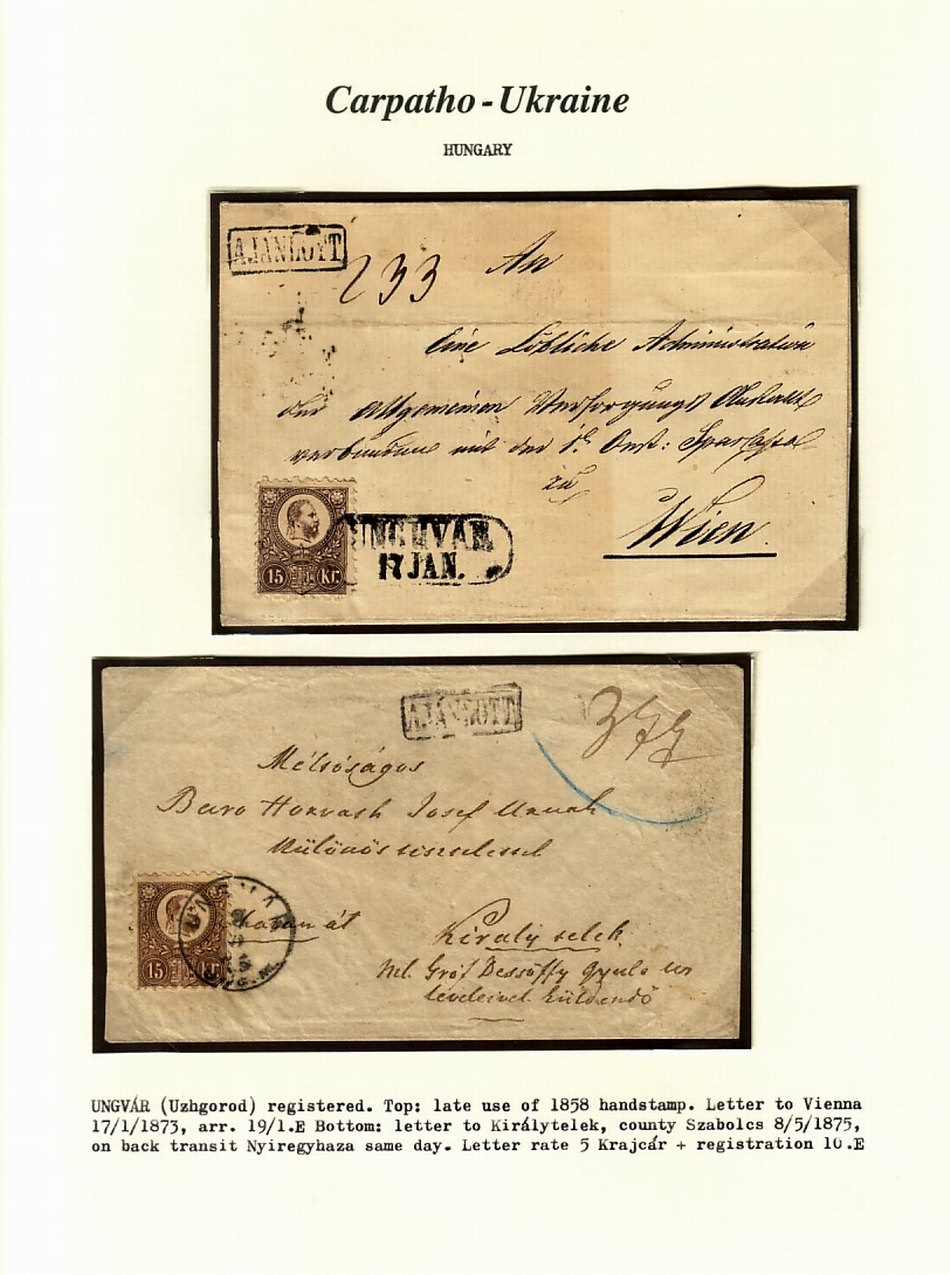 Carpatho - Ukraine
HUNGARY
AJÁNLOTT
233
An
Eine Löbliche Administration
der Allgemeinen Versorgungs Anstalt
verbunden mit der 1t Oest: Sparkasse
zu
Wien
15 Kr
UNGHVÁR
17 JAN.
AJÁNLOTT
Méltóságos
Báro Horvath Josef Urnak
Különös tisztelettel
UNGVÁR
15 Kr
Király telek
Gróf Dessöffy Gyula ur
leveleivel küldendö
UNGVÁR (Uzhgorod) registered. Top: late use of 1858 handstamp. Letter to Vienna
17/1/1873, arr. 19/1.E Bottom: letter to Királytelek, county Szabolcs 8/5/1875,
on back transit Nyiregyhaza same day. Letter rate 5 Krajcár + registration 10.E